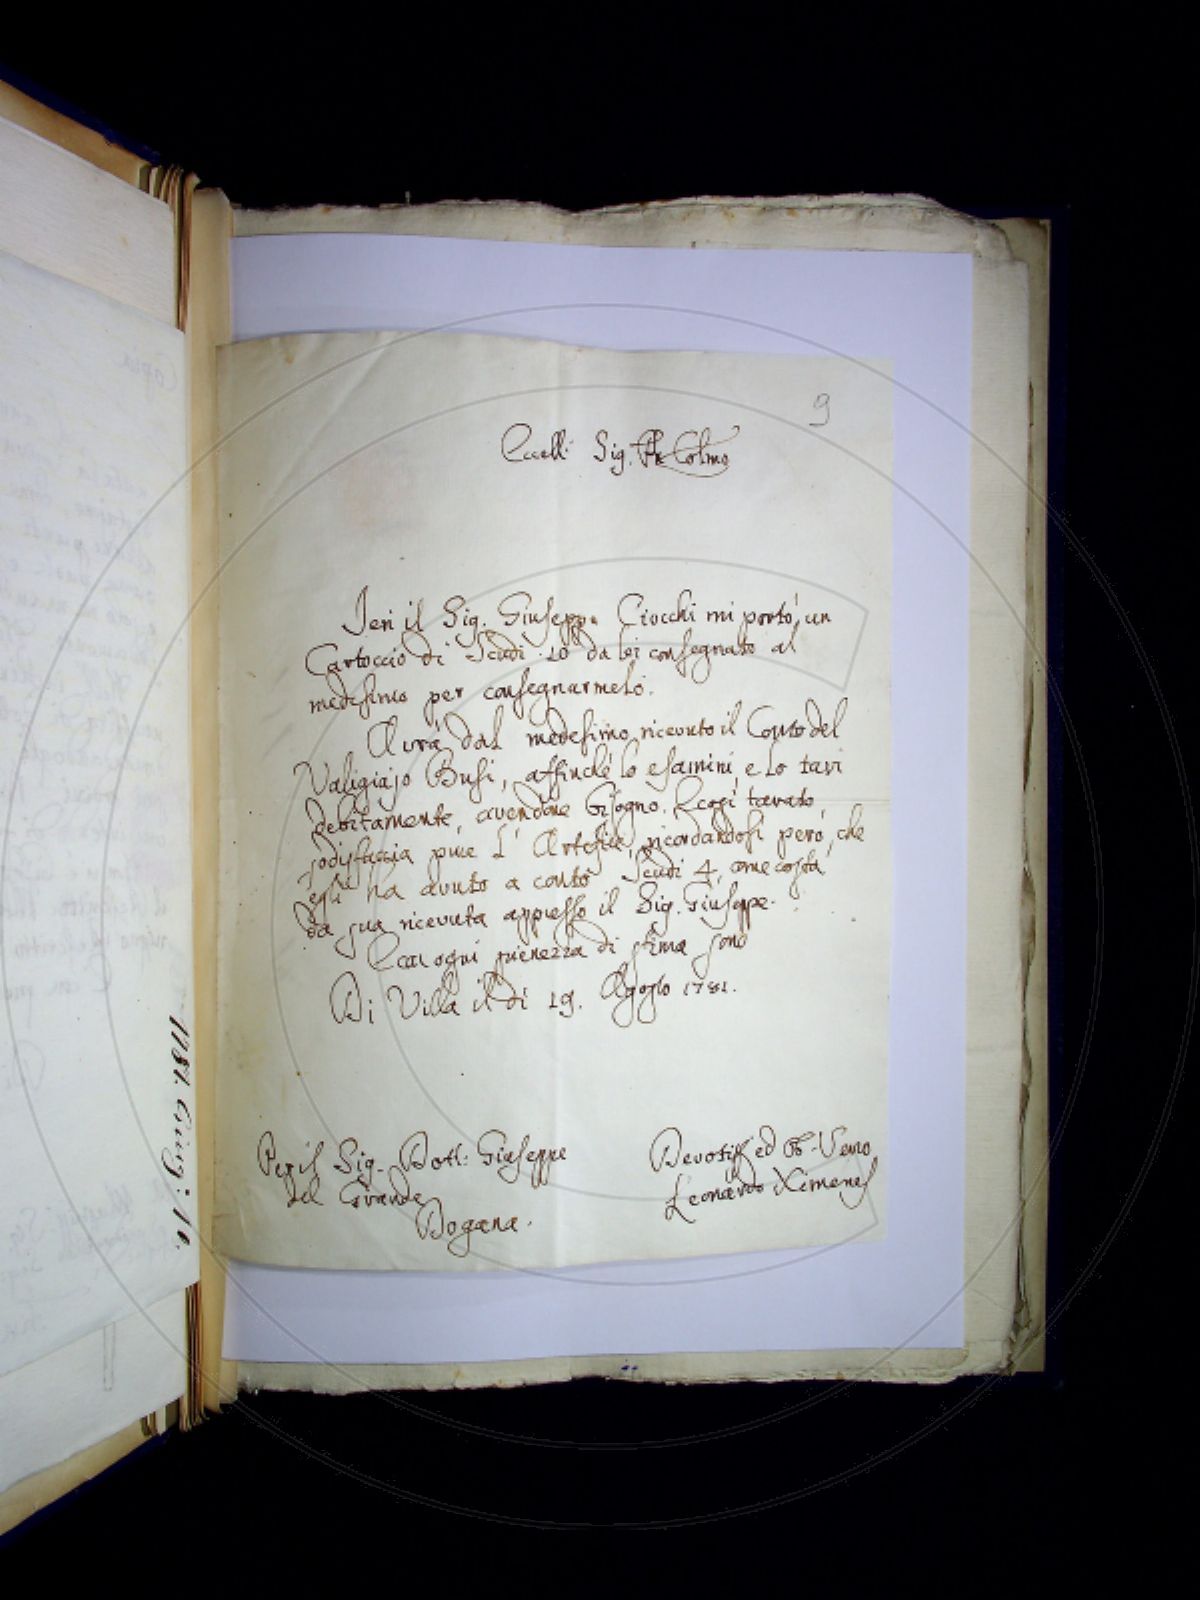 9
Eccell: Sig. Pñe Colmo
Jeri il Sig. Giuseppe Ciocchi mi portò, un
Cartoccio di Scudi 10 da lei consegnato al
medesimo per consegnarmelo.
Avrà dal medesimo ricevuto il Conto del
Valigiajo Busi, affinchè lo esamini, e lo tari
debitamente, avendone bisogno. E così tarato,
sodisfaccia pure l' Artefice, ricordandosi però, che
egli ha avuto a conto Scudi 4, come costa
da sua ricevuta appresso il Sig. Giuseppe.
E con ogni pienezza di stima sono
Di Villa il dì 19. Agosto 1781.
Per il Sig. Dott: Giuseppe
del Grande
Dogana.
Devotiss ed Obb. Servo
Leonardo Ximenes
1781. Giug: 10.
Copia